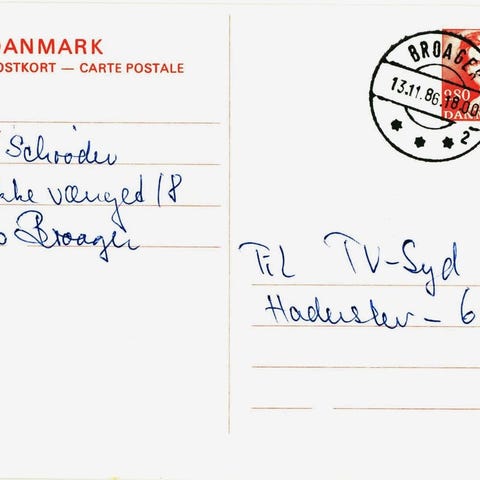 DANMARK
POSTKORT — CARTE POSTALE
BROAGER
13.11.86.18.00
2
280
DANMARK
Schröder
vænged 18
Broager
Til TV-Syd
Haderslev - 6